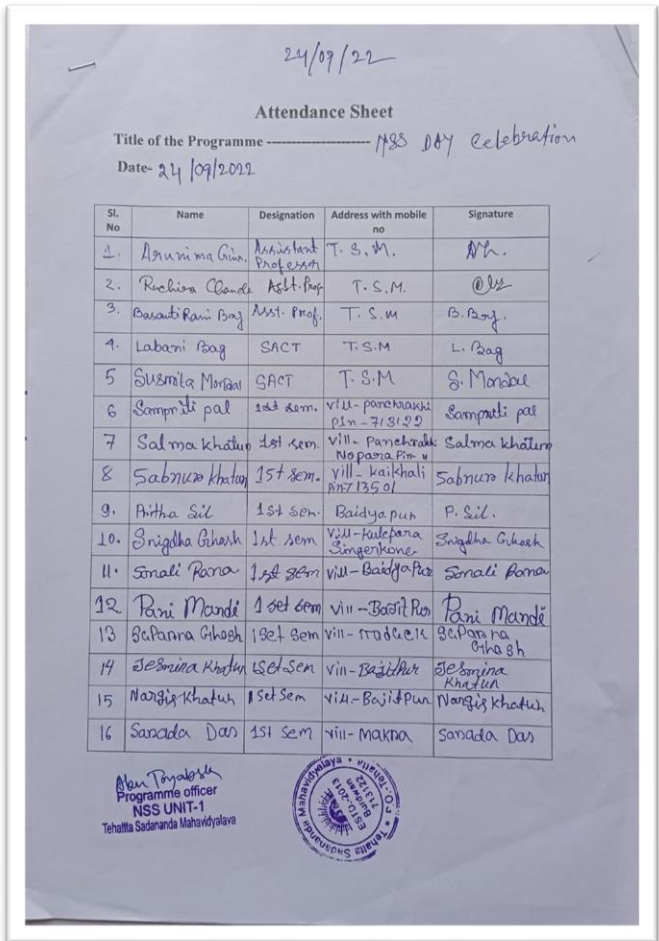 24/09/22
Attendance Sheet
Title of the Programme -------------------- NSS DAY Celebration
Date- 24/09/2022
Sl. No Name Designation Address with mobile no Signature
1. Arunima Assistant Professor T. S. M.
2. Ruchira Asst. Prof T.S.M.
3. Basanti Rani Bag Asst. Prof. T. S.M B. Bag.
4. Labani Bag SACT T.S.M L. Bag
5 Susmita Mondal SACT T.S.M S. Mondal
6 Sampriti pal 1st sem. vill-panchrakhi pin-713122 Sampriti pal
7 Salma khatun 1st sem. vill- Panchrakhi Nopara Pin Salma khatun
8 Sabnur khatun 1st sem. vill- kaikhali pin713501 Sabnur khatun
9. Sil 1st sem. Baidyapur P. Sil.
10. Snigdha Ghosh 1st sem vill-Kulepara Singerkone Snigdha Ghosh
11. Sonali Rana 1st sem vill-Baidyapur Sonali Rana
12 Pani Mandi 1 set sem vill-BajitPur Pani Mandi
13 Panna Ghosh 1set sem vill- Panna Ghosh
14 Jesmina Khatun 1set sem vill-BajitPur Jesmina Khatun
15 Nargis Khatun 1 Set Sem vill-BajitPur Nargis Khatun
16 Sanada Das 1st sem vill- Makna Sanada Das
Programme officer
NSS UNIT-1
Tehatta Sadananda Mahavidyalaya
Tehatta Sadananda Mahavidyalaya * P.O.-Tehatta *
ESTD-2013
Burdwan
713122